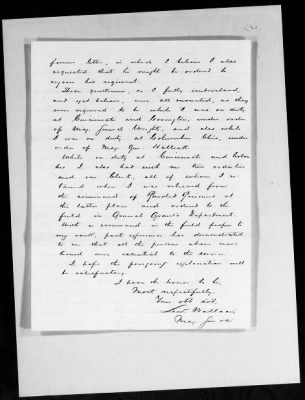 former letter, in which I believe I also
requested that he might be ordered to
rejoin his regiment.
These gentlemen, as I fully understand,
and yet believe, were all mustered, as they
were required to be while I was on duty
at Cincinnati and Covington, under order
of Maj. General Wright, and also while
I was on duty at Columbus Ohio, under
order of Maj. Gen. Halleck.
While on duty at Cincinnati and Colum
bus I also had with me two orderlies
and one Clerk, all of whom I re
tained when I was relieved from
the command of Paroled Prisoners at
the latter place and ordered to the
field in General Grant's Department.
With a command in the field proper to
my rank, past experience has demonstrated
to me that all the persons above men
tioned were essential to the service.
I hope the foregoing explanation will
be satisfactory.
I have the honor to be,
Most respectfully,
Your obt svt.
Lew. Wallace,
Maj. Gen